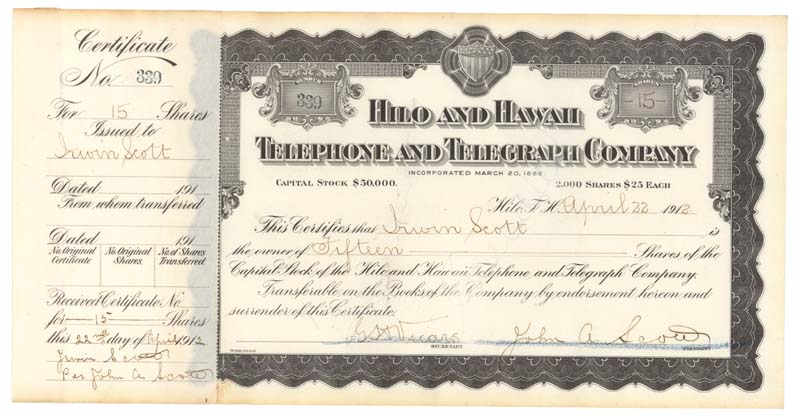 Certificate
No. 339
For 15 Shares
Issued to
Irwin Scott
Dated 191
From whom transferred
Dated 191
No. Original Certificate
No. Original Shares.
No. of Shares Transferred.
Received Certificate No
for 15 Shares
this 22nd day of April 1912
Irwin Scott
Per John A Scott
NUMBER
339
SHARES
-15-
HILO AND HAWAII
TELEPHONE AND TELEGRAPH COMPANY
INCORPORATED MARCH 20, 1888
CAPITAL STOCK $50,000.
2,000 SHARES $25 EACH
Hilo, T.H. April 22 1912
This Certifies that Irwin Scott is
the owner of Fifteen Shares of the
Capital Stock of the Hilo and Hawaii Telephone and Telegraph Company.
Transferable on the Books of the Company by endorsement hereon and
surrender of this Certificate.
Vicars
John A. Scott
SECRETARY
PRESIDENT